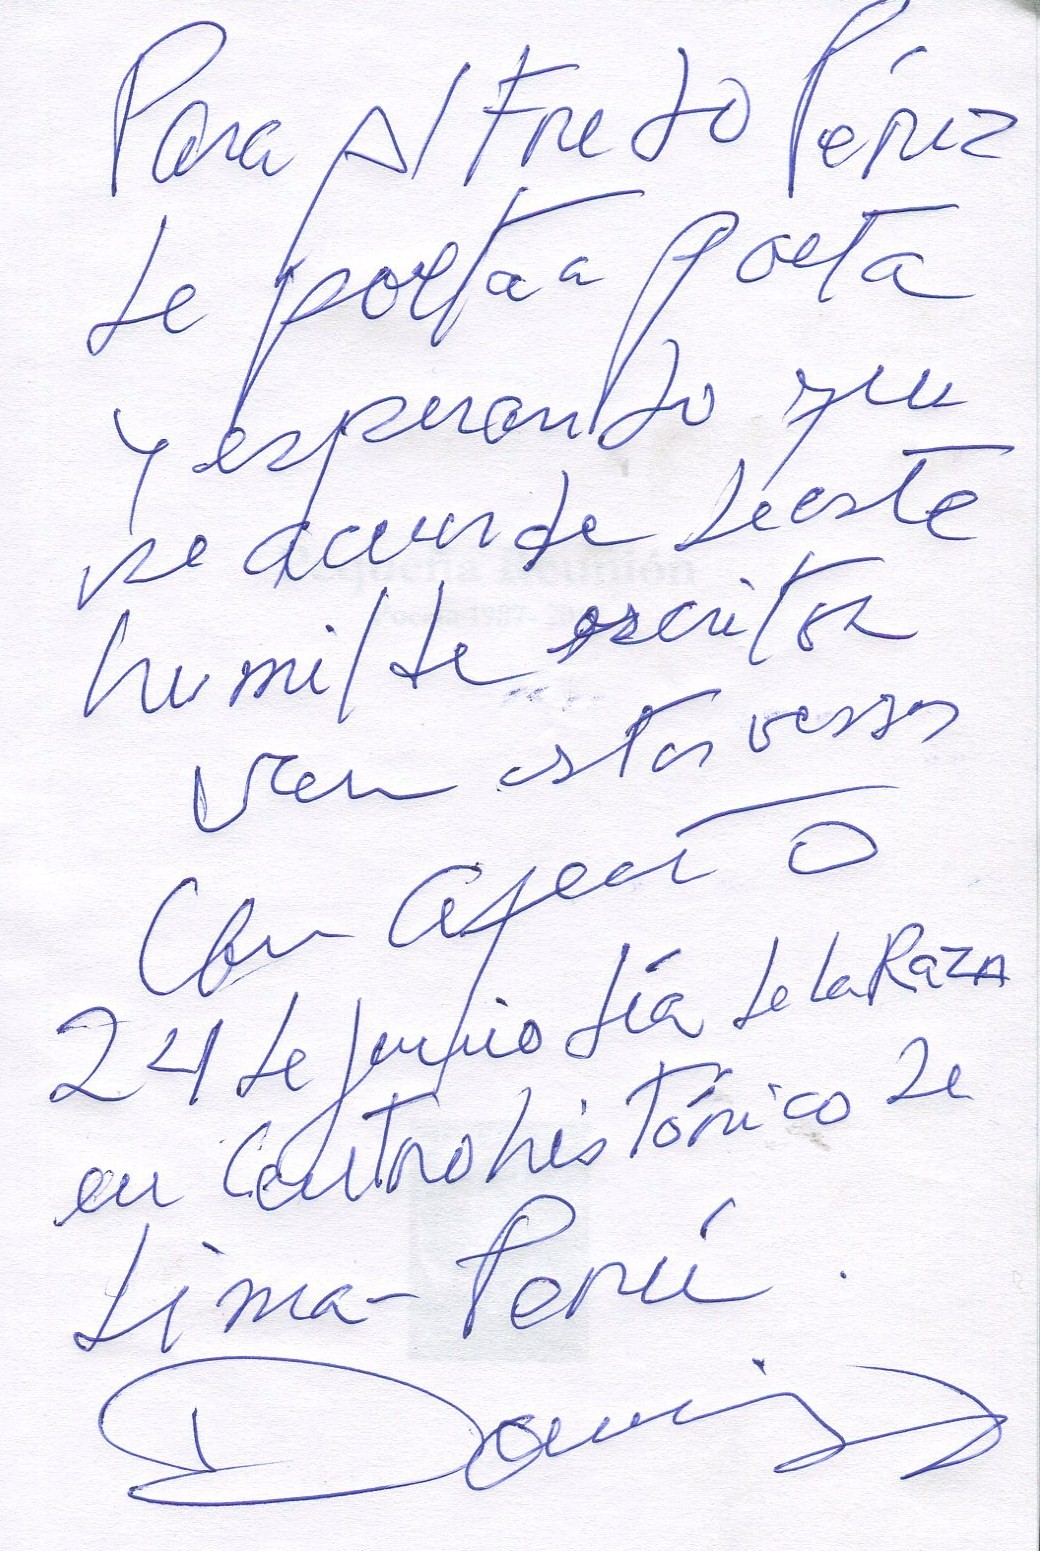 Para Alfredo Pérez
de poeta a poeta
y esperando que
se acuerde de este
humilde escritor
van estos versos
Con afecto
24 de junio día de la Raza
en Centro histórico de
Lima - Perú.
Pequeña Reunión
Poesía 1987-20